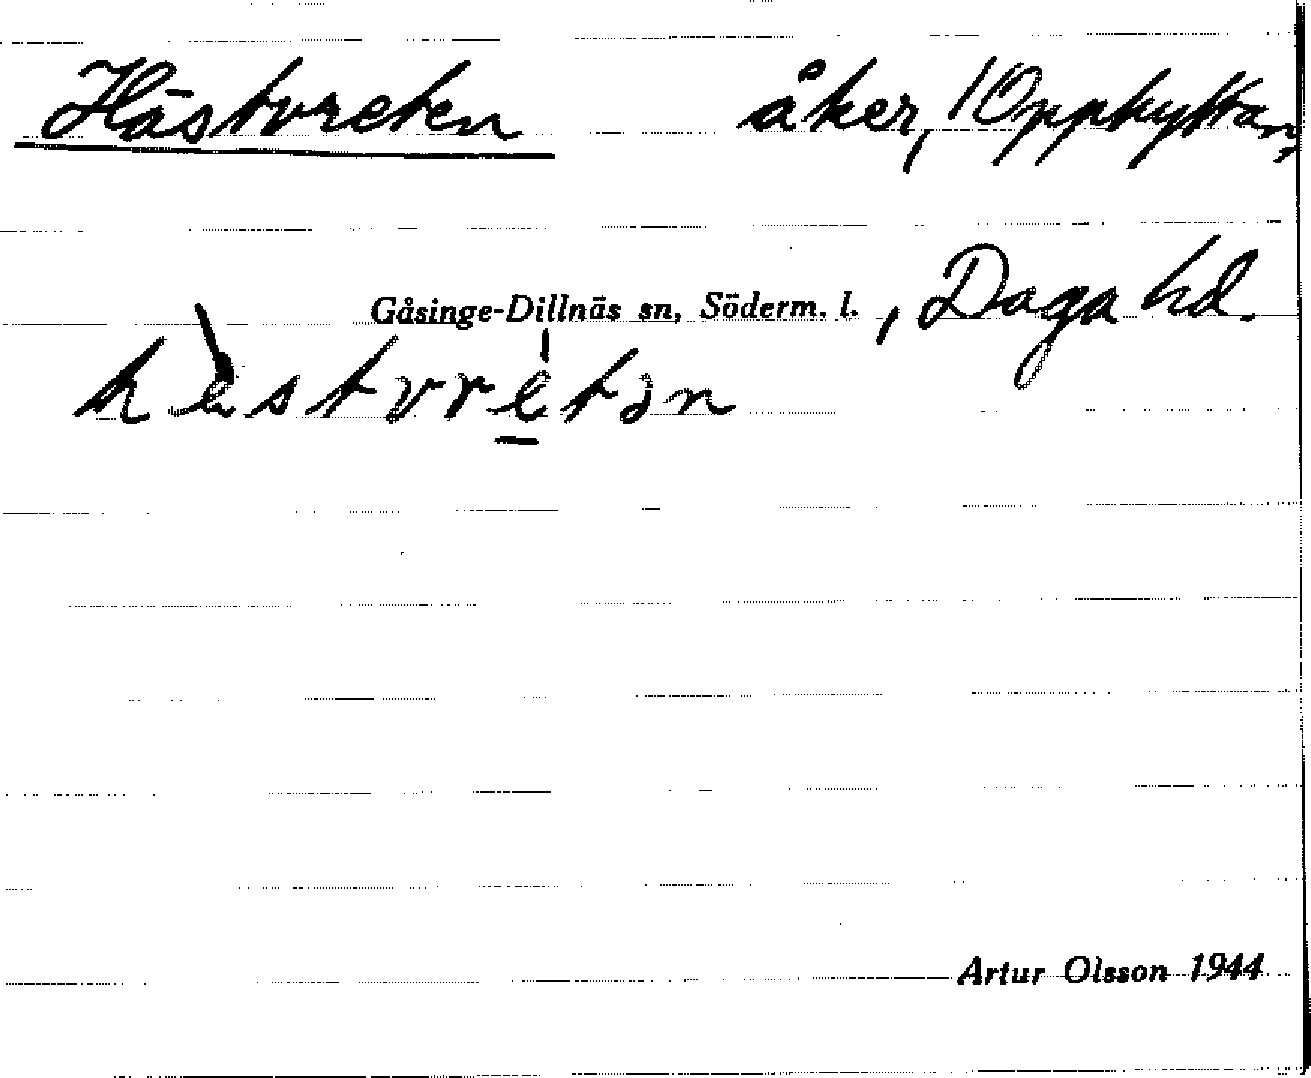 Hästvreten åker, /Opphyttan,
Gåsinge-Dillnäs sn, Söderm. l. , Daga hd.
hὲstvrètən
Artur Olsson 1944